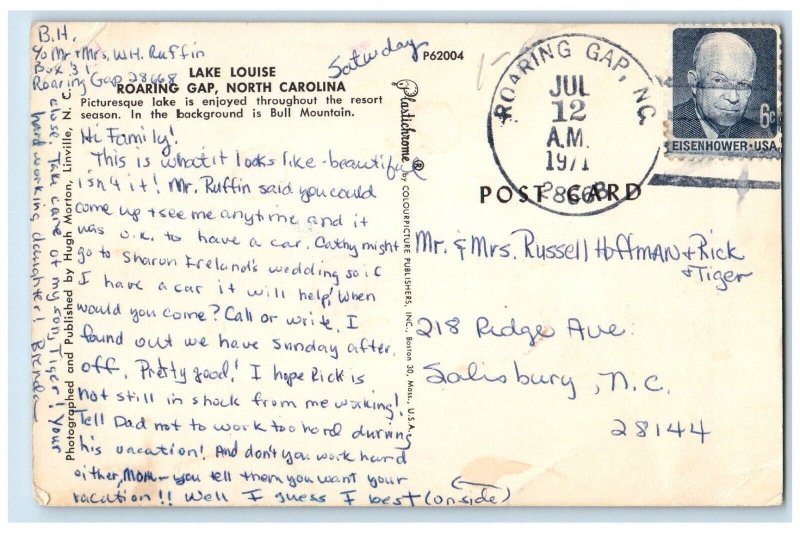 B.H.
c/o Mr + Mrs. W.H. Ruffin
Box 31
Roaring Gap 28668
Saturday
LAKE LOUISE
ROARING GAP, NORTH CAROLINA
Picturesque lake is enjoyed throughout the resort
season. In the background is Bull Mountain.
P62004
Hi Family!
This is what it looks like - beautiful
isn't it! Mr. Ruffin said you could
come up + see me anytime and it
was o.k. to have a car. Cathy might
go to Sharon Ireland's wedding so if
I have a car it will help! When
would you come? Call or write. I
found out we have Sunday after.
off. Pretty good! I hope Rick is
not still in shock from me working!
Tell Dad not to work too hard during
his vacation! And don't you work hard
either, Mom - you tell them you want your
vacation!! Well I guess I best (on side)
close. Take care of my son, Tiger! Your
hard working daughter! Brenda
Photographed and Published by Hugh Morton, Linville, N. C.
Plastichrome® by COLOURPICTURE PUBLISHERS, INC., Boston 30, Mass., U.S.A.
ROARING GAP, NC.
JUL
12
A.M.
1971
28668
6c
EISENHOWER·USA
POST CARD
Mr. & Mrs. Russell Hoffman + Rick
+ Tiger
218 Ridge Ave.
Salisbury, N.C.
28144